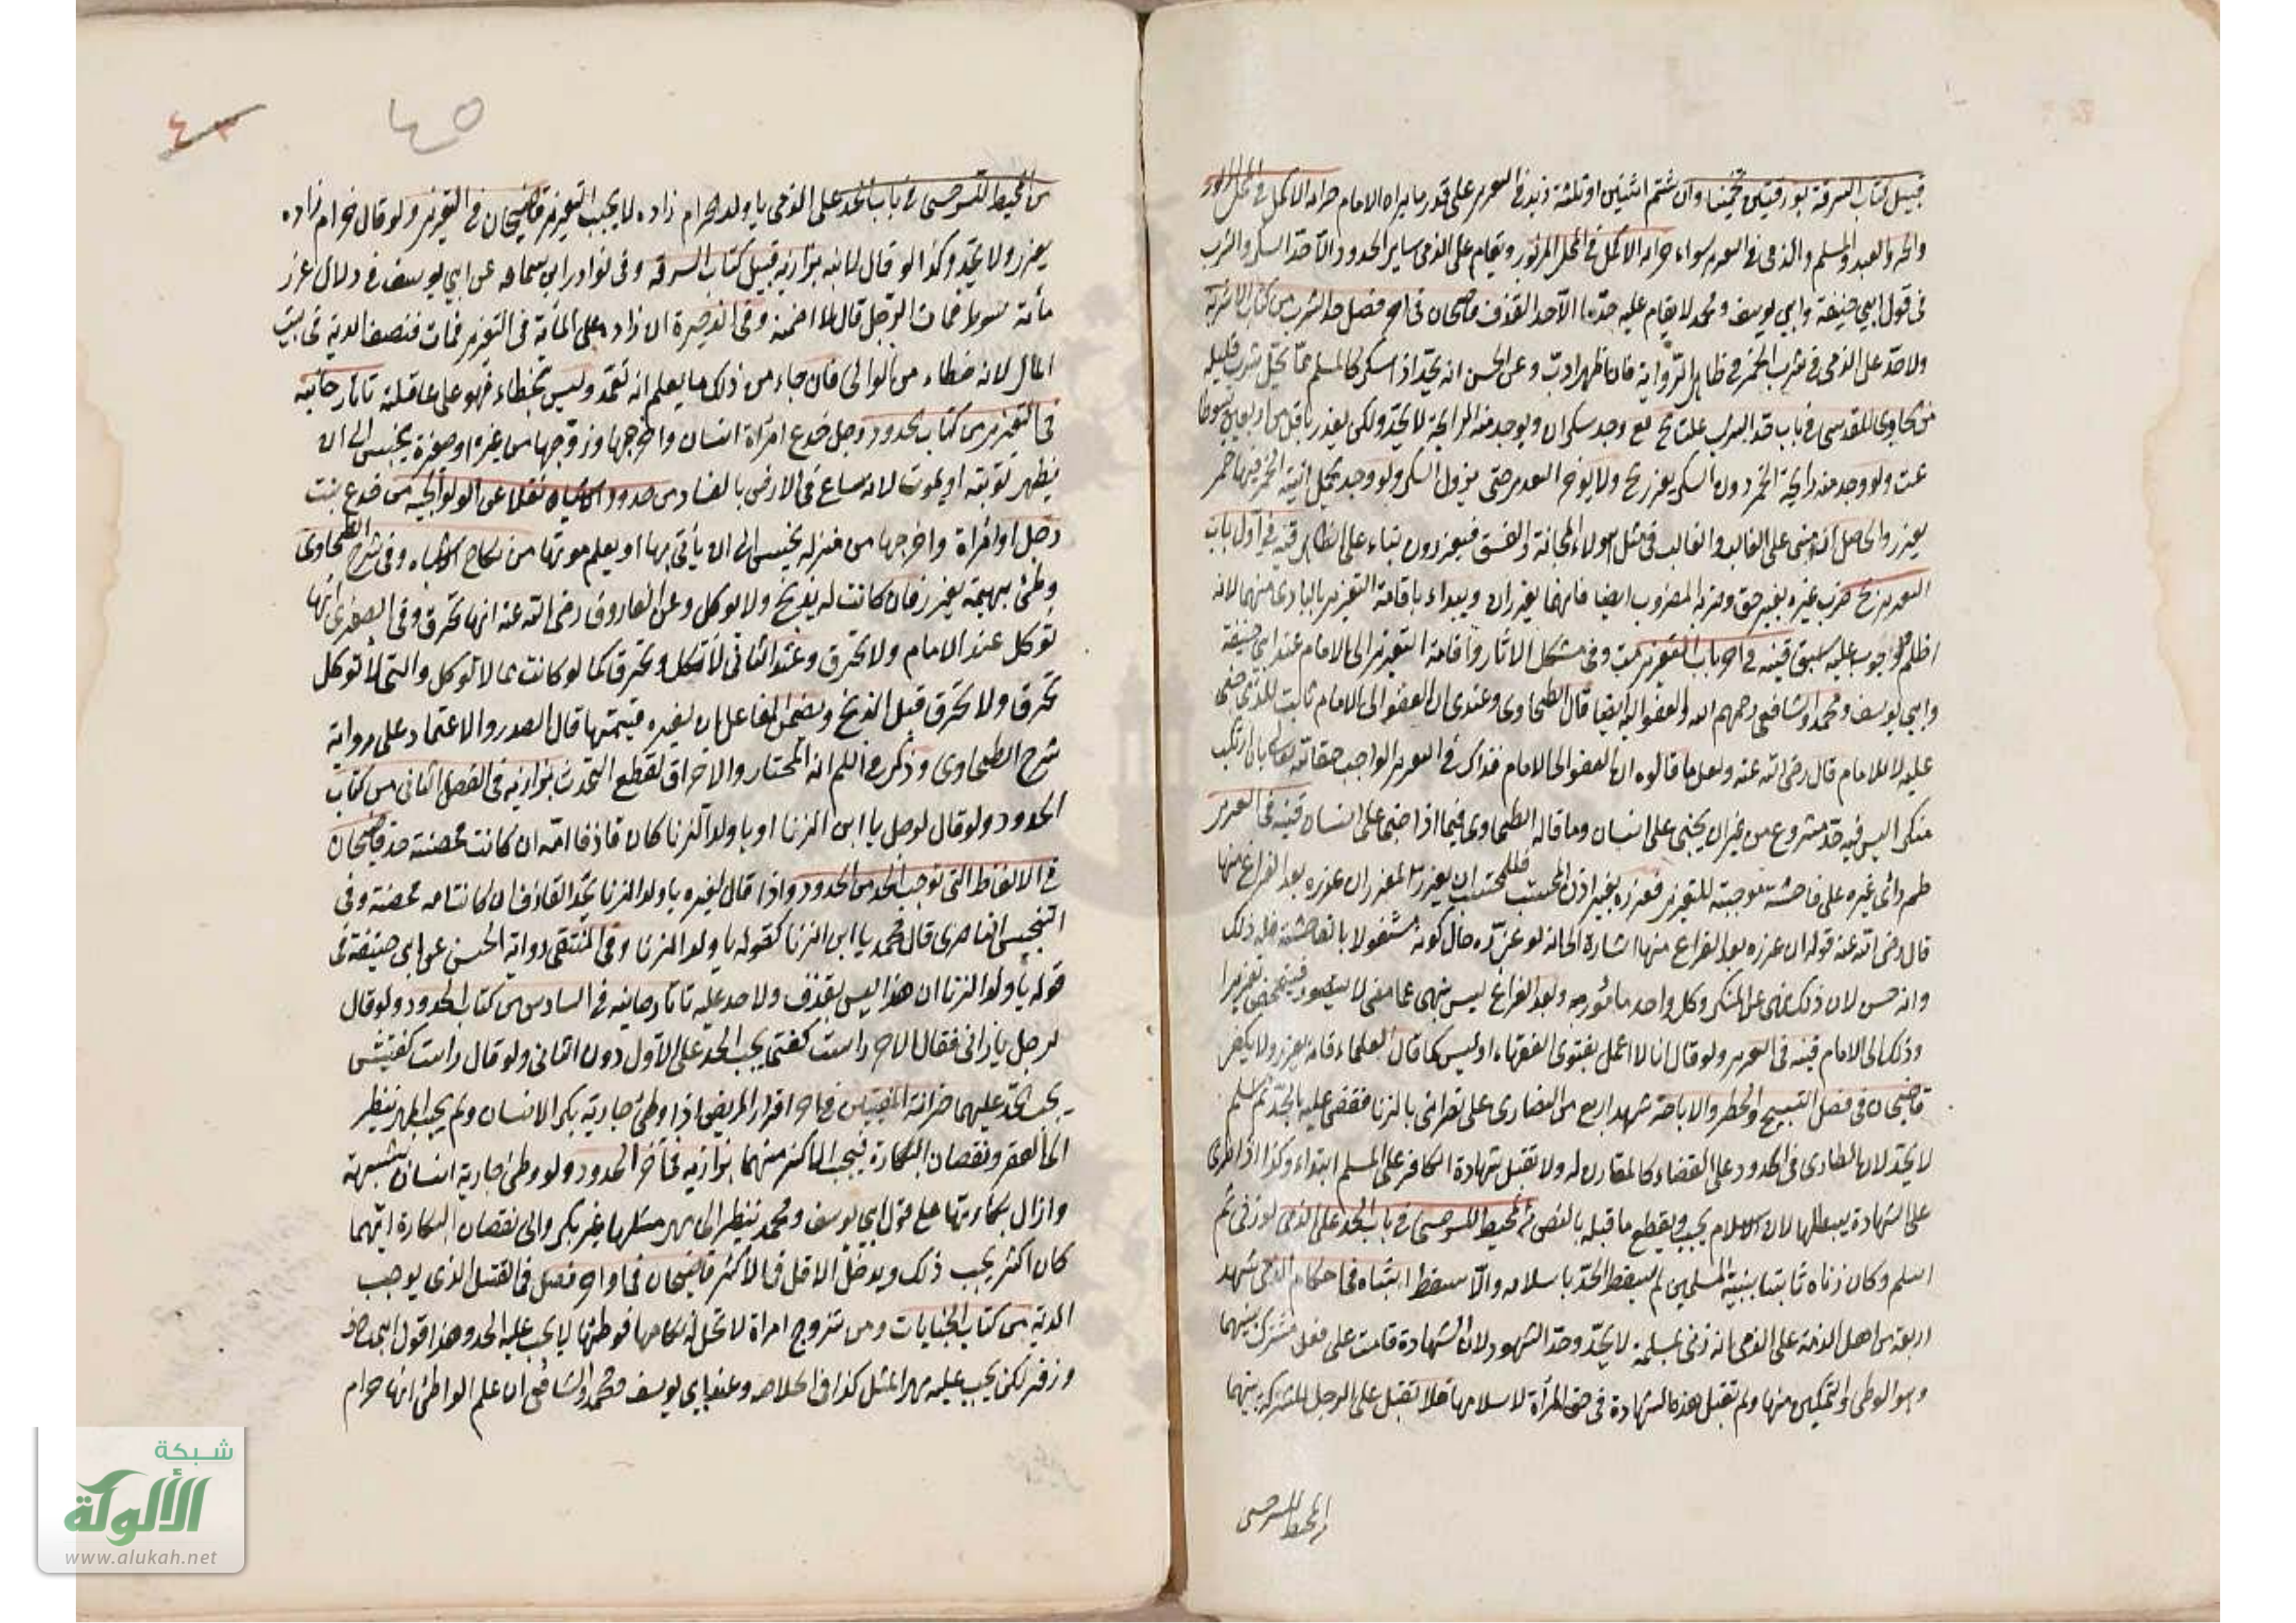 قبيل كتاب السرقة بورقتين تخمينا وان شتم اثنين او ثلثة زيد في التعزير على قدر ما يراه الامام خزانة الاكمل في المحل المزبور
والحر والعبد والمسلم والذمي في التعزير سواء خزانة الاكمل في المحل المزبور ويقام على الذمي ساير الحدود الا حد السكر والشرب
في قول ابي حنيفة وابي يوسف ومحمد لا يقام عليه حد ما الا حد القذف قاضيخان في اخر فصل حد الشرب من كتاب الاشربة
ولا حد على الذمي في شرب الخمر في ظاهر الرواية فان اظهر ادب وعن الحسن انه يحد اذا سكر كالمسلم مما يحل شرب قليله
من حاوي القدسي في باب حد الشرب وجد سكران ويوجد منه الرايحة لا يحد ولكن يعذر باقل من اربعين سوطا
عت ولو وجد منه رايحة الخمر دون السكر يعزر ولا يؤخر التعزير حتى يزول السكر ولو وجد يحمل انية الخمر فيها خمر
يعزر والحاصل انه مبنى على الغالب والغالب في مثل هولاء المجانة والفسق فيعزرون بناء على الظاهر قنيه في اول باب
التعزير ضرب غيره بغير حق وضربه المضروب ايضا فانهما يعزران ويبداء باقامة التعزير بالبادي منهما لانه
اظلم والوجوب عليه اسبق قنيه في اخر باب التعزير وفي مشكل الاثار واقامة التعزير الى الامام عند ابي حنيفة
وابي يوسف ومحمد والشافعي رحمهم الله والعفو اليه ايضا قال الطحاوي وعندي ان العفو الى الامام ثابت للذي جنى
عليه لا للامام قال رضي الله عنه ولعل ما قالوه ان العفو الى الامام فذاك في التعزير الواجب حقا لله تعالى بان ارتكب
منكرا ليس فيه حد مشروع من غير ان يجنى على انسان وما قاله الطحاوي فيما اذا جنى على انسان قنيه في التعزير
راى غيره على فاحشة موجبة للتعزير فعزره بغير اذن المحتسب فللمحتسب ان يعزر المعزر ان عزره بعد الفراغ منها
قال رضي الله عنه قوله ان عزره بعد الفراغ منها اشارة الى انه لو عزره حال كونه مشغولا بالفاحشة فله ذلك
وانه حسن لان ذلك نهى عن المنكر وكل واحد مأمور به وبعد الفراغ ليس بنهى عما مضى لا يتصور فيتمحض تعزيرا
وذلك الى الامام قنيه في التعزير ولو قال انا لا اعمل بفتوى الفقهاء او ليس كما قال العلماء فانه يعزر ولا يكفر
قاضيخان في فصل التسبيح والحظر والاباحة شهد اربع من النصارى على نصراني بالزنا فقضى عليه بالحد ثم اسلم
لا يحد لان الطارى في الحدود على القضاء كالمقارن له ولا تقبل شهادة الكافر على المسلم ابتداء وكذا اذا طرى
على الشهادة يبطلها لان الاسلام يجب ويقطع ما قبله بالنص من المحيط للسرخسي في باب الحد على الذمي لو زنى ثم
اسلم وكان زناه ثابتا ببينة المسلمين لم يسقط الحد باسلامه والا سقط اشباه في احكام الذمي شهد
اربعة من اهل الذمة على الذمي انه زنى بمسلمة لا يحد وحد الشهود لان الشهادة قامت على فعل مشترك بينهما
وهو الوطى والتمكين منها ولم تقبل هذه الشهادة في حق المرأة لاسلامها فلا تقبل على الرجل للشركة بينهما
من المحيط للسرخسي
٤٥
٤٣
من المحيط للسرخسي في باب الحد على الذمي يا ولد الحرام زاده لا يجب التعزير قاضيخان في التعزير ولو قال حرام زاده
يعزر ولا يحد وكذا لو قال لابنه بزازيه قبيل كتاب السرقة وفي نوادر ابن سماعه عن ابي يوسف في دلال عزر
مأئة سوط فمات الرجل قال لا اضمنه وفي الذخيرة ان زاد على المأة في التعزير فمات فنصف الدية في بيت
المال لانه خطاء من الوالي فان جاء من ذلك ما يعلم انه تعمد وليس بخطاء فهو على عاقلته تاتارخانيه
في التعزير من كتاب الحدود رجل خدع امرأة انسان واخرجها وزوجها من غيره او صغيرة يحبس الى ان
يظهر توبته او يموت لانه ساع في الارض بالفساد من حدود الاشباه نقلا عن الولوالجيه من خدع بنت
رجل او امرأة واخرجها من منزله يحبس الى ان يأتى بها او يعلم موتها من نكاح الاشباه وفي شرح الطحاوي
وطئ بهيمة يعزر فان كانت له يذبح ولا يوكل وعن الفاروق رضي الله عنه انها تحرق وفي الصغرى انها
توكل عند الامام ولا تحرق وعند الثاني لا تكل وتحرق كما لو كانت مما لا توكل والتي لا توكل
تحرق ولا تحرق قبل الذبح ويضمن الفاعل ان لغيره قيمتها قال الصدر والاعتماد على رواية
شرح الطحاوي وذكر في انه المختار والاحراق لقطع التحدث بزازيه في الفصل الثاني من كتاب
الحدود ولو قال لرجل يا ابن الزنا او يا ولد الزنا كان قاذفا امه ان كانت محصنة حد قاضيخان
في الالفاظ التي توجب الحد من الحدود واذا قال لغيره يا ولد الزنا يحد القاذف ان كانت امه محصنة وفي
التجنيس الناصري قال محمد يا ابن الزنا كقوله يا ولد الزنا وفي المنتقى رواية الحسن عن ابي حنيفة في
قوله يا ولد الزنا ان هذا ليس بقذف ولا حد عليه تاتارخانيه في السادس من كتاب الحدود ولو قال
لرجل يا زاني فقال الاخر راست كفتى يجب الحد على الاول دون الثاني ولو قال راست كفتيش
يجب الحد عليهما خزانة المفتيين في اخر اقرار المريض اذا وطئ جارية بكر الانسان ولم يجب المهر ينظر
الى العقر ونقصان البكارة فيجب الاكثر منهما بزازيه في اخر الحدود ولو وطئ جارية انسان بشبهة
وازال بكارتها على قول ابي يوسف ومحمد ينظر الى مهر مثلها غير بكر والى نقصان البكارة ايهما
كان اكثر يجب ذلك ويدخل الاقل في الاكثر قاضيخان في اواخر فصل في القتل الذي يوجب
الدية من كتاب الجنايات ومن تزوج امراة لا تحل له نكاحها فوطئها لا يجب عليه الحد وهذا قول ابي حنيفة
وزفر لكن يجب عليه مهر المثل كذا في الخلاصه وعند ابي يوسف ومحمد والشافعي ان علم الواطئ انها حرام
شبكة
الألوكة
www.alukah.net